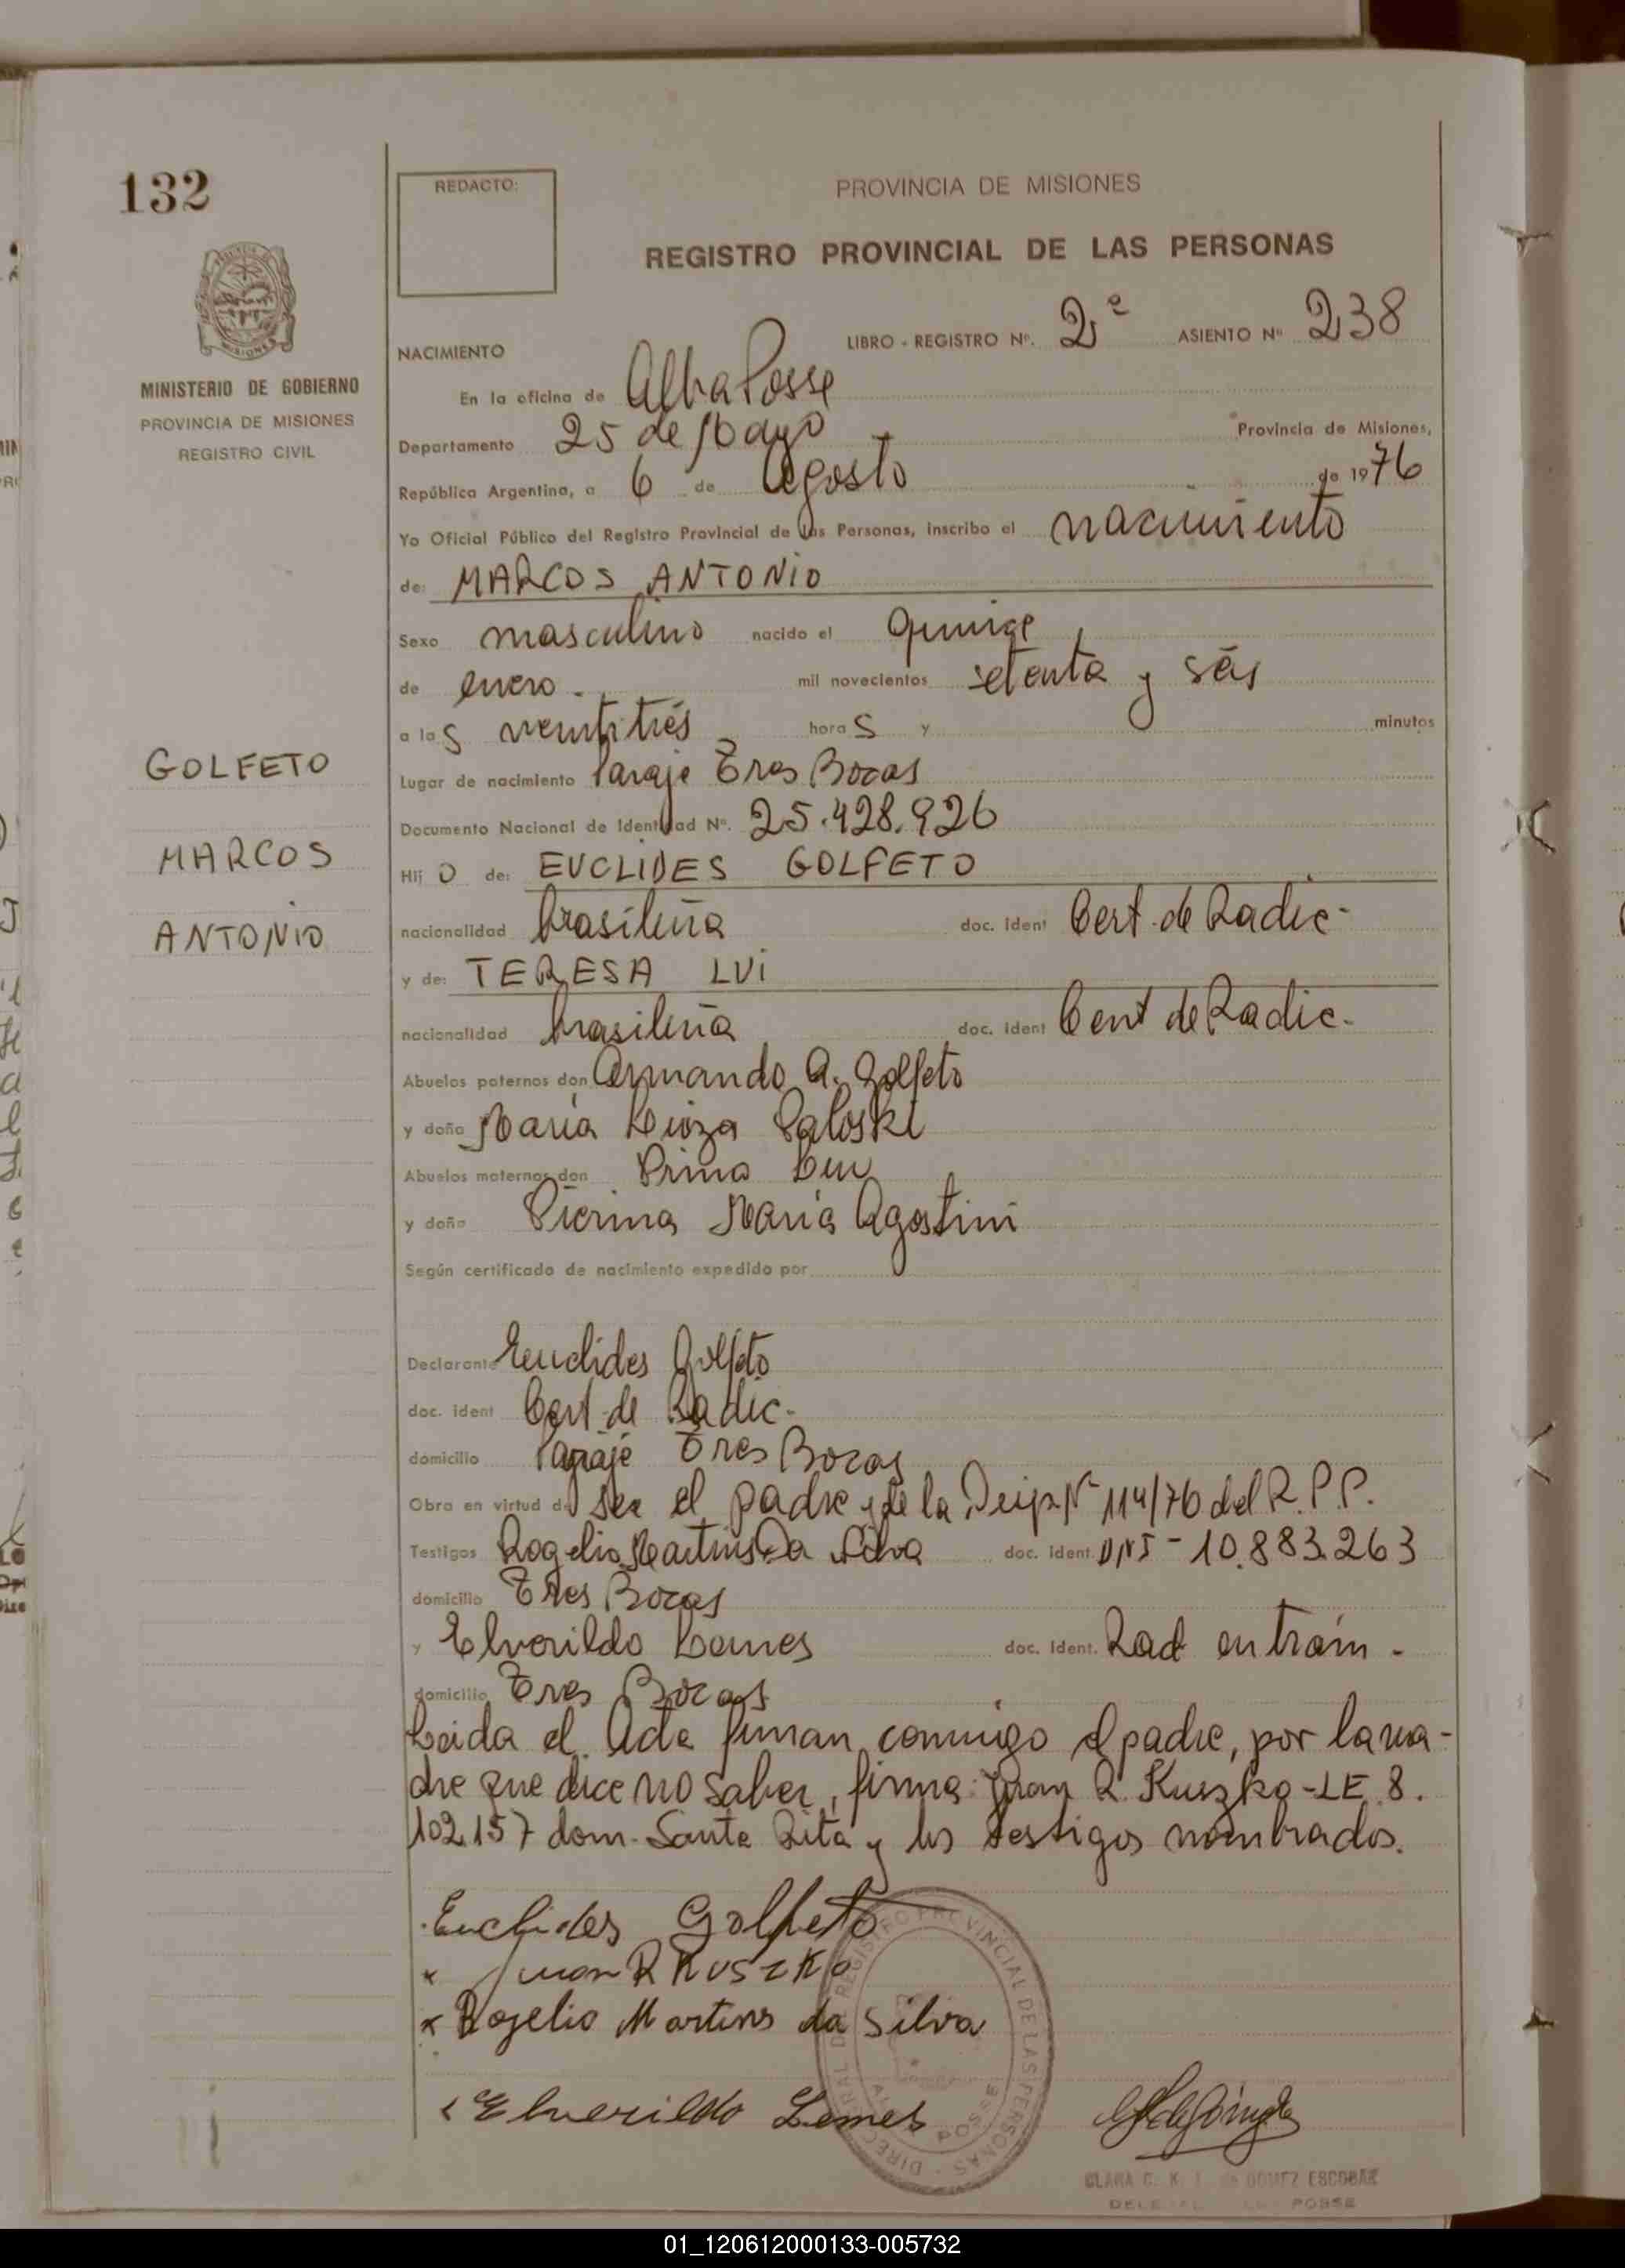 132
REDACTO:
PROVINCIA DE MISIONES
REGISTRO PROVINCIAL DE LAS PERSONAS
MINISTERIO DE GOBIERNO
PROVINCIA DE MISIONES
REGISTRO CIVIL
LIBRO - REGISTRO Nº. 2º ASIENTO Nº 238
NACIMIENTO
En la oficina de Alba Posse
Departamento 25 de Mayo Provincia de Misiones,
República Argentina, a 6 de Agosto de 1976
Yo Oficial Público del Registro Provincial de las Personas, inscribo el nacimiento
de: MARCOS ANTONIO
Sexo masculino nacido el quince
de enero - mil novecientos setenta y seis
a las veintitrés horas y minutos
GOLFETO
MARCOS
ANTONIO
Lugar de nacimiento Paraje Tres Bocas
Documento Nacional de Identidad Nº. 25.428.926
Hijo de: EUCLIDES GOLFETO
nacionalidad brasileña doc. ident Cert. de Radic-
y de: TERESA LUI
nacionalidad brasileña doc. ident Cert de Radic-
Abuelos paternos don Armando A. Golfeto
y doña María Paloski
Abuelos maternos don Primo Lui
y doña Pierina María Agostini
Según certificado de nacimiento expedido por
Declarante Euclides Golfeto
doc. ident Cert de Radic-
domicilio Paraje Tres Bocas
Obra en virtud de ser el padre y de la Nº 114/76 del R.P.P.
Testigos Rogelio Martins Da Silva doc. ident. DNI - 10.883.263
domicilio Tres Bocas
y Elverildo Lemes doc. ident. Rad en trám -
domicilio Tres Bocas
Leida el Acta firman conmigo el padre, por la ma-
dre que dice no saber, firma: Juan R. Kuszko - LE 8.
102.157 dom. Santa Rita y los testigos nombrados.
Euclides Golfeto
x Juan R Kuszko
x Rogelio Martins da Silva
x Elverildo Lemes
REGISTRO PROVINCIAL DE LAS PERSONAS
POSSE
CLARA C. K. de GOMEZ ESCOBAR
POSSE
01_120612000133-005732